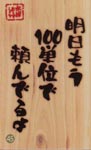 明日もう
100単位で
頼んでるよ